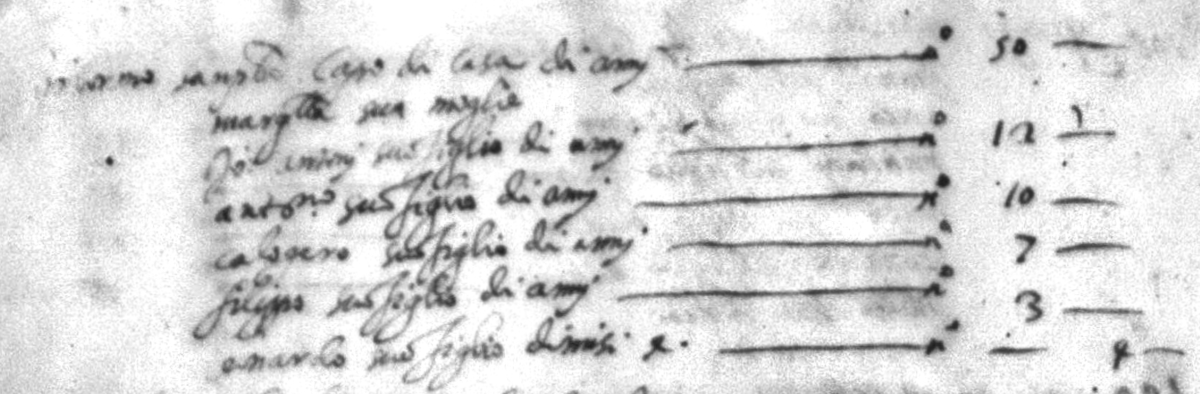 capo di casa di anni n° 50
margta sua moglie
suo figlio di anni n° 12
anton.no suo figlio di anni n° 10
calogero suo figlio di anni n° 7
filippo suo figlio di anni n° 3
onardo suo figlio di misi 4. n° — 4